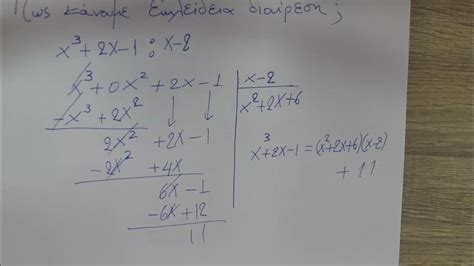 Πως κάναμε Ευκλείδεια διαίρεση;
x³+2x-1 : x-2
x³+0x²+2x-1 | x-2
-x³+2x² | x²+2x+6
2x²+2x-1
-2x²+4x
6x-1
-6x+12
11
x³+2x-1=(x²+2x+6)(x-2)
+11